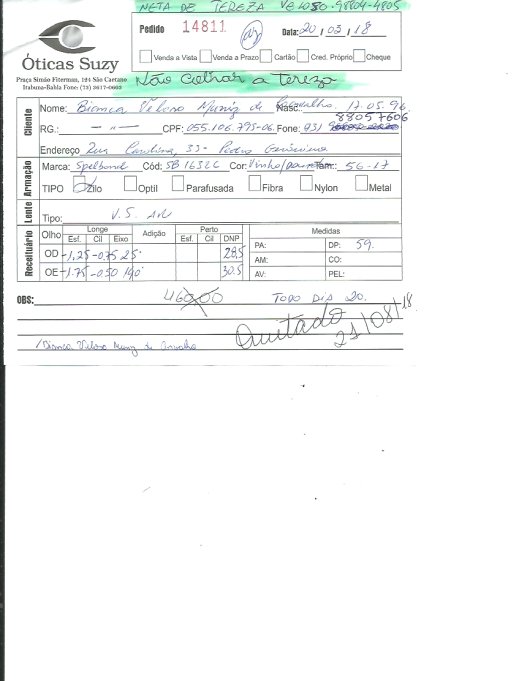 NETA DE TEREZA VELOSO 98804-4805
Pedido 14811 Data: 20/03/18
Venda a Vista Venda a Prazo Cartão Cred. Próprio Cheque
Óticas Suzy
Praça Simão Fiterman, 124 São Caetano
Itabuna-Bahia Fone: (73) 3617-0663
Não Cobrar a Tereza
Cliente
Nome: Bianca Veloso Muniz de Carvalho Nasc.: 17.05.96
88057606
RG.: CPF: 055.106.795-06 Fone: (73)
Endereço Rua 33 - Pedro Gerônimo
Armação
Marca: Spelbond Cód: SB1632C Cor: Vinho Tam: 56-17
TIPO Zilo Optil Parafusada Fibra Nylon Metal
Lente
Tipo: V.S. AR
Receituário
Olho Longe Adição Perto Medidas
Esf. Cil Eixo Esf. Cil DNP
PA: DP: 59
OD -1,25 -0,75 25° 28,5
AM: CO:
OE -1,75 -0,50 190° 30.5
AV: PEL:
OBS: 460,00 TODO DIA 20.
Quitado 21/08/18
Bianca Veloso Muniz de Carvalho